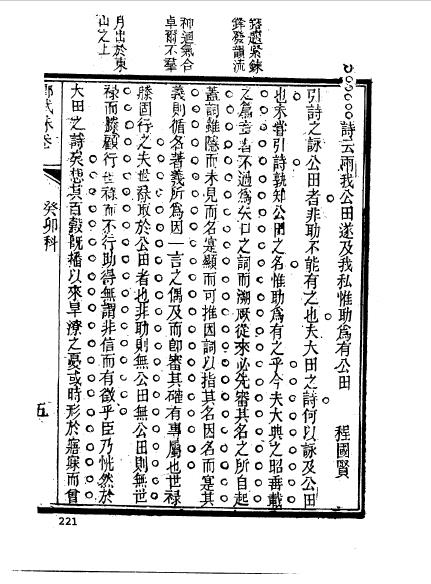 鍛鍊緊鍊
鋒發韻流
神迴氣合
卓爾不羣
月出於東
山之上
詩云雨我公田遂及我私惟助爲有公田 程國賢
引詩之詠公田者非助不能有之也夫大田之詩何以詠及公田
也未嘗引詩孰知公田之名惟助爲有之乎今夫大典之昭垂載
之篇章者不過爲矢口之詞而溯厥從來必先審其名之所自起
蓋詞雖隱而未見而名寔顯而可推因詞以指其名因名而寔其
義則循名著義所爲因一言之偶及而卽審其確有專屬也世祿
滕固行之夫世祿取於公田者也非助則無公田無公田則無世
祿而滕顧行世祿而不行助得無謂非信而有徵乎臣乃恍然於
大田之詩矣想其百穀旣播以來旱潦之憂或時形於寤寐而曾
癸卯科
五
221